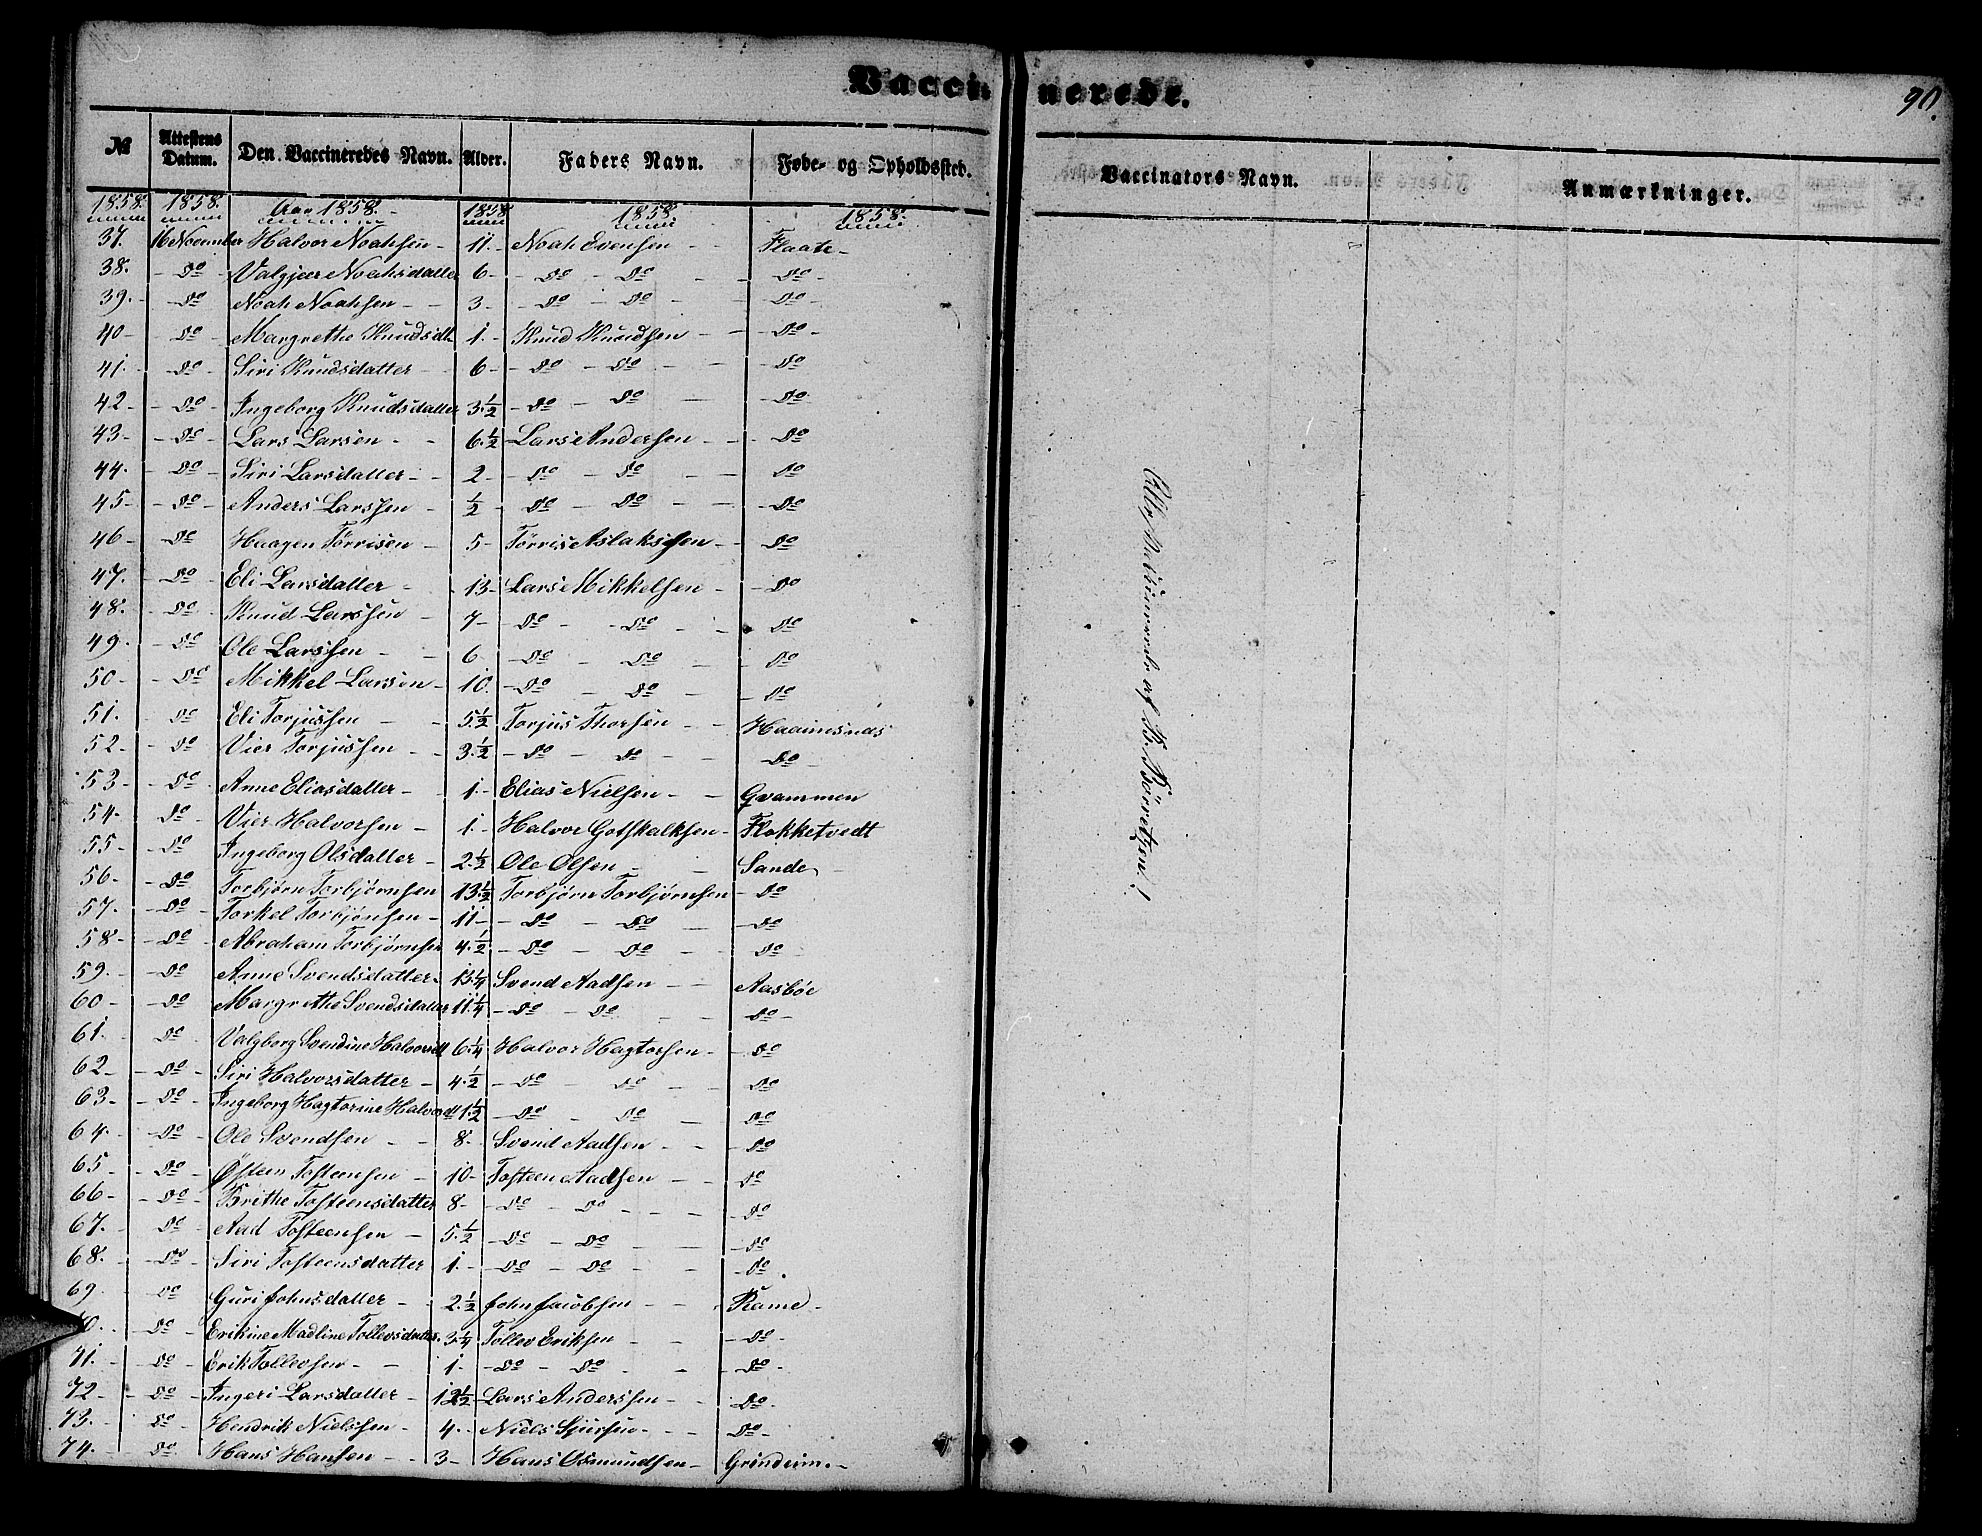 Vaccinerede.
90.
№ Attestens Datum. Den Vaccineredes Navn. Alder. Faders Navn. Føde- og Opholdssted. Vaccinators Navn. Anmærkninger.
1858. 1858. Aar 1858. 1858 1858. 1858.
37. 16 November Halvor Noahsen - 11. - Noah Evensen - - Flaate -
38. - Do - Valgjær Noahsdatter 6 - - Do - Do - - Do -
39. - - Do - Noah Noahsen - - 3 - - Do - Do - - Do -
40 - - Do - Margrethe Knudsdt. 1. - Knud Knudsen - - - Do -
41. - Do - Siri Knudsdatter - 6 - - Do - Do - - - Do
42 - - Do - Ingeborg Knudsdatter 3.½ - Do - Do - - Do -
43 - - Do - Lars Larsen - - 6.½ Lars Andersen - - - Do
44. - Do - Siri Larsdatter - - 2 - - Do - Do - - Do
45 - - Do - Anders Larssen - ½ - Do - Do - - Do
46 - - Do - Haagen Tørrisen - 5 - Tørris Aslaksen - - Do
47. - Do - Eli Larsdatter - - 13 - Lars Mikkelsen - - Do
48. - Do - Knud Larssen - 7 - - Do - - Do - - - Do
49. - Do Ole Larssen - - 6. - Do - Do - - Do
50 - - Do - Mikkel Larsen - 10. - Do - Do - - Do
51. - Do Eli Torjussen - - 5.½ Torjus Thorsen - - Haaimsnæs
52 - - Do - Vier Torjussen - - 3.½ - Do - Do - - Do -
53 - - Do - Anne Eliasdatter - 1. - Elias Nielsen - - Qvammen
54. - Do - Vier Halvorsen - 1. - Halvor Gotskalksen - Flokketvedt
55 - - Do Ingeborg Olsdatter - 2.½ Ole Olsen - - Sande -
56 - - Do - Torbjørn Torbjørnsen 13.½ Torbjørn Torbjørnsen - Do
57. - Do - Torkel Torbjønsen - 11 - - Do - Do - - Do
58 - - Do - Abraham Torbjørnsen 4.½ - Do - Do - - Do
59. - Do Anne Svendsdatter. 13¼ Svend Aadsen - - Aasbøe
60 - - Do - Margrethe Svendsdatter 11¼ - Do - Do - - Do -
61. Do - Valgborg Svendine Halvorsdt 6¼ Halvor Hagtorsen - - Do
62 - - Do - Siri Halvorsdatter - 4.½ - Do - Do - - Do
63 - - Do - Ingeborg Hagtorine Halvorsdt 1½ - Do - Do - - Do
64. - - Do - Ole Svendsen - - 8. - Svend Aadsen - - - Do
65 - - Do - Østen Tosteensen - 10 - Tosteen Aadsen - - Do
66 - - Do - Brithe Tosteensdatter 8 - - Do - Do - - - Do
67. Do - Aad Tosteensen - 5.½ - Do - Do - - Do
68. - - Do - Siri Tosteensdatter 1. - - Do - Do - - Do
69 - Do - Guri Johnsdatter - 2.½ John Jacobsen - - Rame -
70. - - Do - Erikine Madline Tollevsdatter. 3.¼ Tollev Eriksen - - Do -
71. - - Do - Erik Tollevsen - - 1. - Do - Do - - Do -
72 - - Do - Ingeri Larsdatter - 12½ Lars Anderssen - - Do -
73. - - Do - Hendrik Nielssen - 4. - Niels Sjursen - - - Do -
74. - Do - Hans Hansen - - 3 - Hans Osmundsen - Grindeim. -
Alle af B. Børretzen!